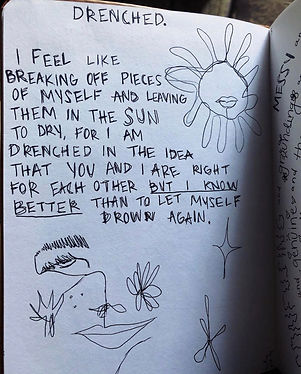 DRENCHED.
I FEEL LIKE
BREAKING OFF PIECES
OF MYSELF AND LEAVING
THEM IN THE SUN
TO DRY, FOR I AM
DRENCHED IN THE IDEA
THAT YOU AND I ARE RIGHT
FOR EACH OTHER BUT I KNOW
BETTER THAN TO LET MYSELF
DROWN AGAIN.
MESSY